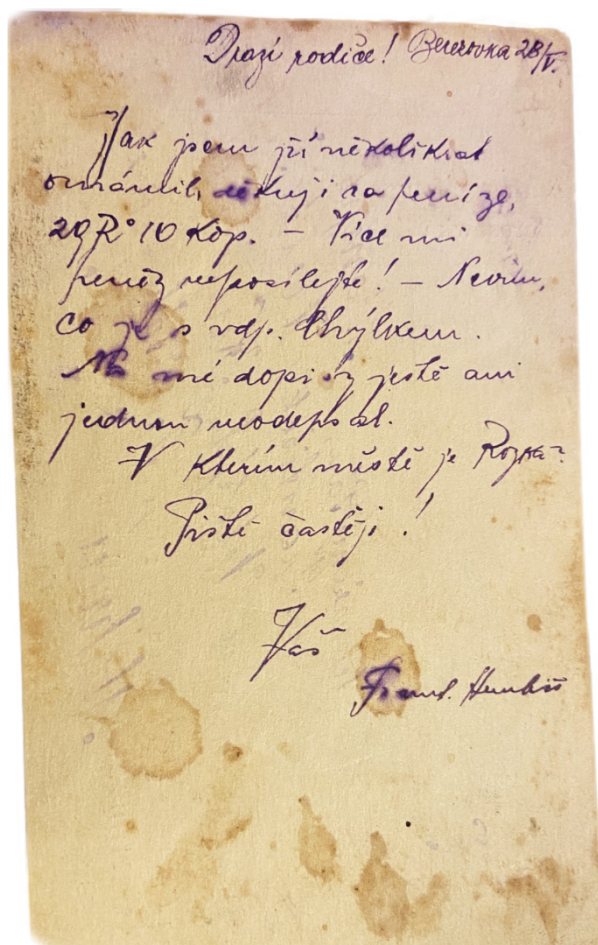 Drazí rodiče! Berezovka 28/V.
Jak jsem již několikrát
oznámil, děkuji za peníze,
29 R° 10 Kop. — Více mi
peněz neposílejte! — Nevím,
co je s vdp. Chýlkem.
Na mé dopisy ještě ani
jednou neodepsal.
V kterím městě je Rozka?
Pište častěji!
Váš
Frant.